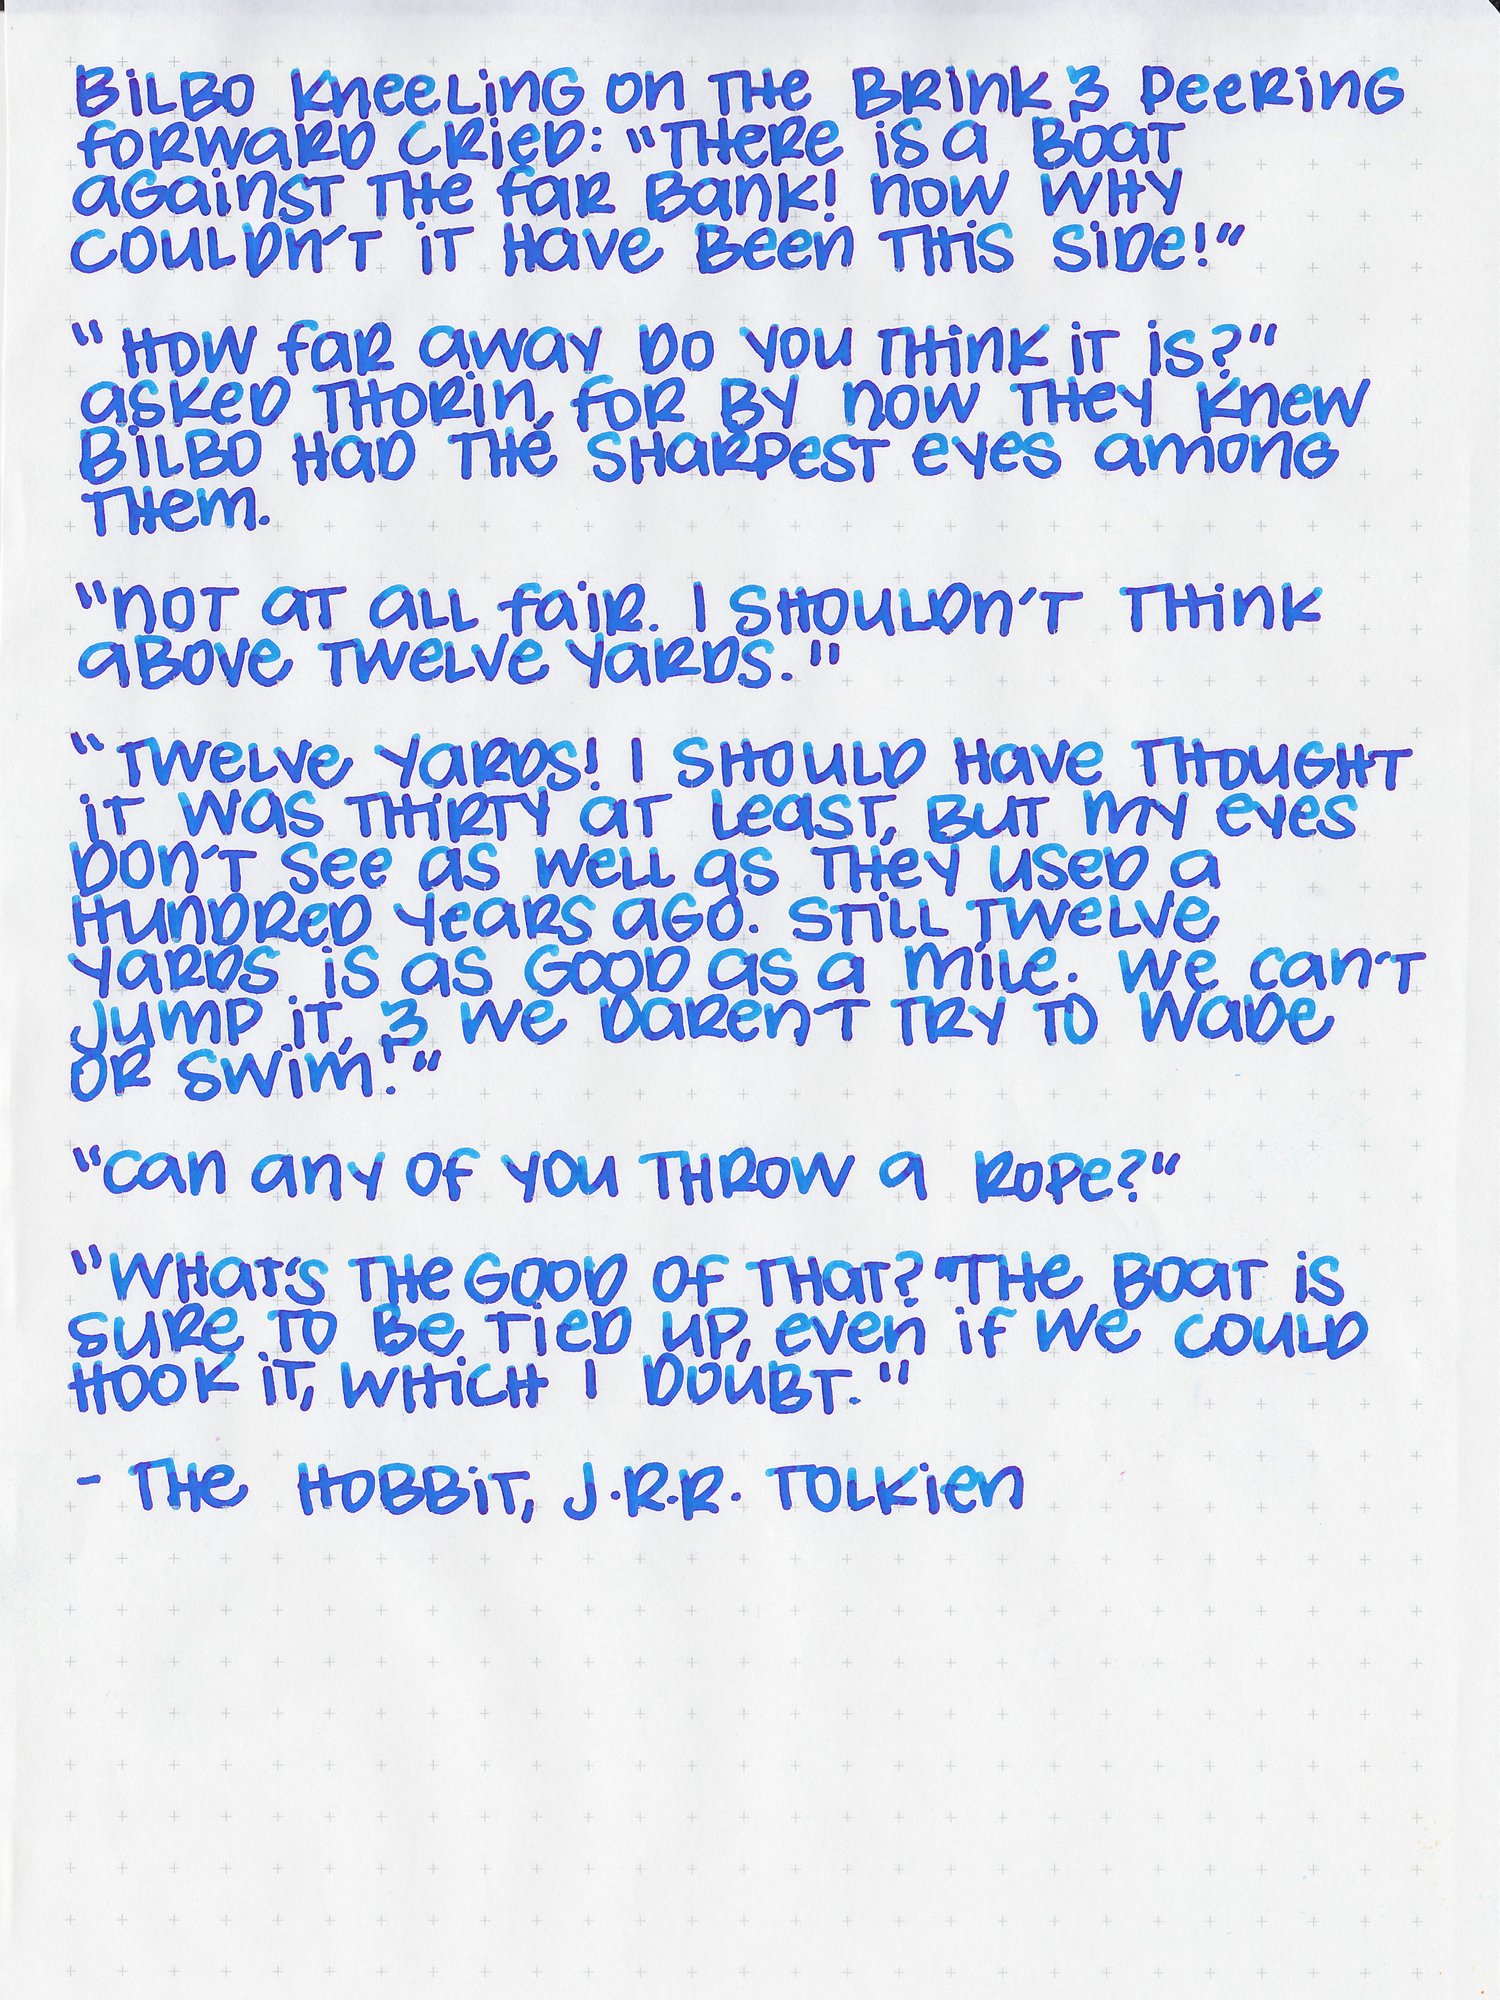 Bilbo kneeling on the brink & peering
forward cried: "There is a boat
against the far bank! Now why
couldn't it have been this side!"
"How far away do you think it is?"
asked Thorin, for by now they knew
Bilbo had the sharpest eyes among
them.
"Not at all fair. I shouldn't think
above twelve yards."
"Twelve yards! I should have thought
it was thirty at least, but my eyes
don't see as well as they used a
hundred years ago. Still twelve
yards is as good as a mile. We can't
jump it, & we daren't try to wade
or swim!"
"Can any of you throw a rope?"
"What's the good of that? "The boat is
sure to be tied up, even if we could
hook it, which I doubt."
- The Hobbit, J.R.R. Tolkien